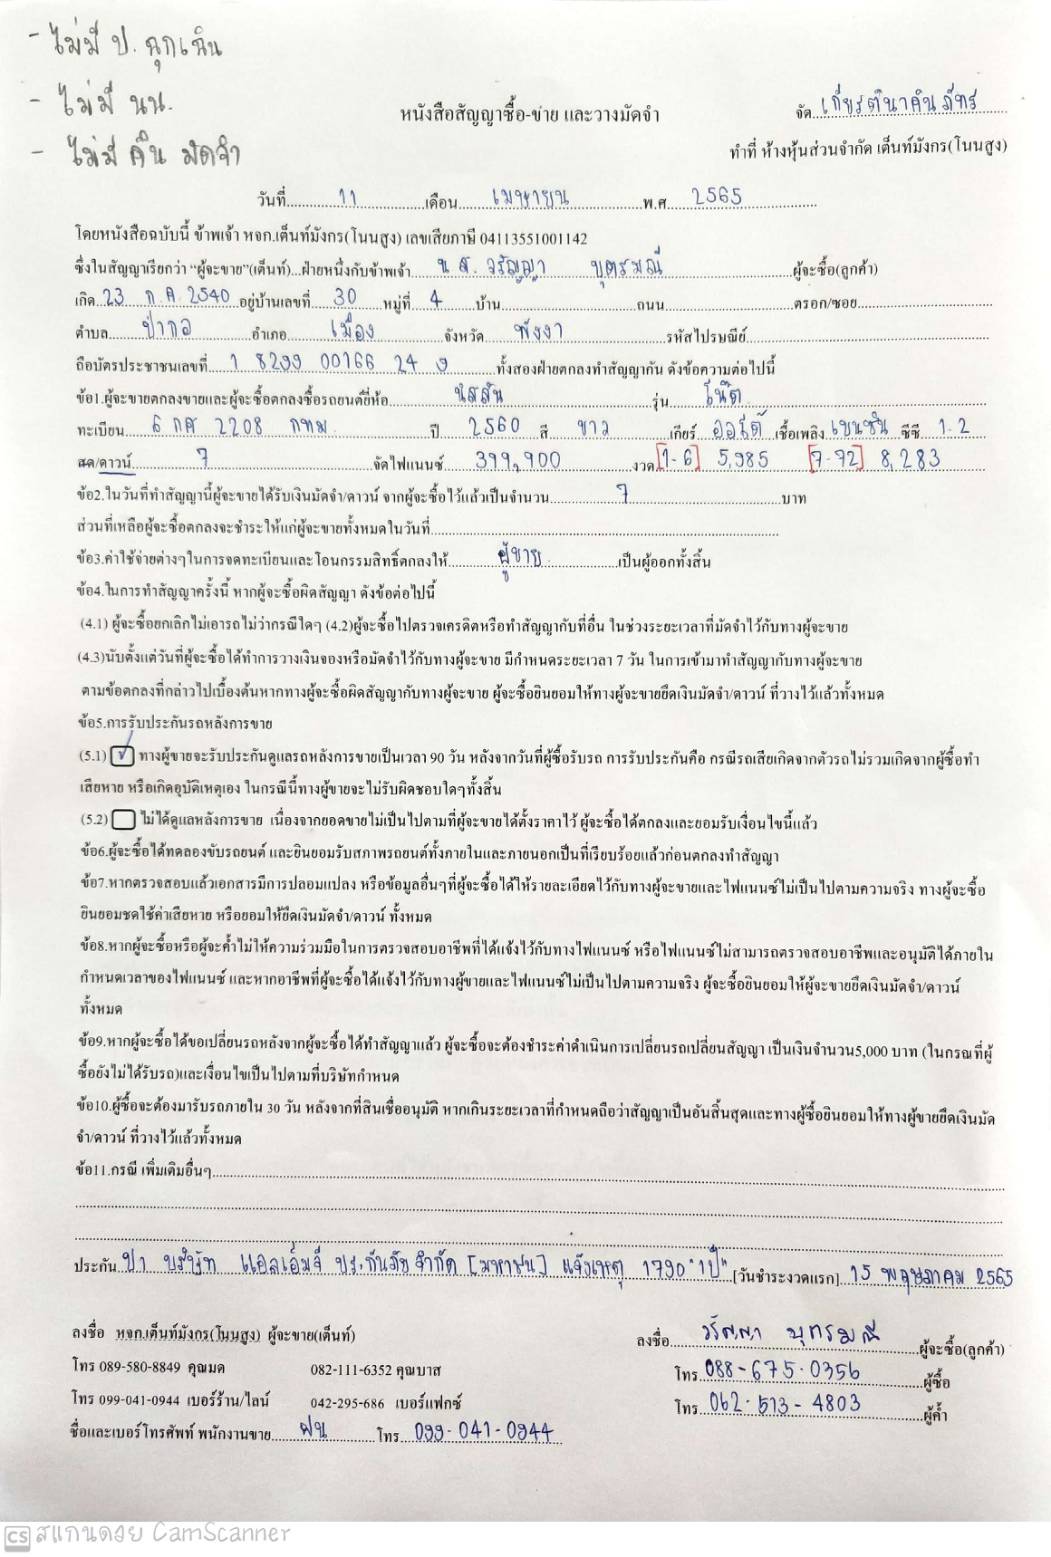 - ไม่มี ป. ฉุกเฉิน
- ไม่มี นน.
- ไม่มี คืน มัดจำ
หนังสือสัญญาซื้อ-ขาย และวางมัดจำ
จัด เกียรตินาคินภัทร
ทำที่ ห้างหุ้นส่วนจำกัด เต็นท์มังกร(โนนสูง)
วันที่ 11 เดือน เมษายน พ.ศ 2565
โดยหนังสือฉบับนี้ ข้าพเจ้า หจก.เต็นท์มังกร(โนนสูง) เลขเสียภาษี 04113551001142
ซึ่งในสัญญาเรียกว่า "ผู้จะขาย"(เต็นท์)...ฝ่ายหนึ่งกับข้าพเจ้า น.ส. วรัญญา บุตรมณี ผู้จะซื้อ(ลูกค้า)
เกิด 23 ก.ค. 2540 อยู่บ้านเลขที่ 30 หมู่ที่ 4 บ้าน ถนน ตรอก/ซอย
ตำบล ป่ากอ อำเภอ เมือง จังหวัด พังงา รหัสไปรษณีย์
ถือบัตรประชาชนเลขที่ 1 8299 00166 24 ทั้งสองฝ่ายตกลงทำสัญญากัน ดังข้อความต่อไปนี้
ข้อ1.ผู้จะขายตกลงขายและผู้จะซื้อตกลงซื้อรถยนต์ยี่ห้อ นิสสัน รุ่น โน๊ต
ทะเบียน 6 กศ 2208 กทม. ปี 2560 สี ขาว เกียร์ ออโต้ เชื้อเพลิง เบนซิน ซีซี 1.2
สด/ดาวน์ 7 จัดไฟแนนซ์ 399,900 งวด [1-6] 5,985 [7-72] 8,283
ข้อ2.ในวันที่ทำสัญญานี้ผู้จะขายได้รับเงินมัดจำ/ดาวน์ จากผู้จะซื้อไว้แล้วเป็นจำนวน 7 บาท
ส่วนที่เหลือผู้จะซื้อตกลงจะชำระให้แก่ผู้จะขายทั้งหมดในวันที่
ข้อ3.ค่าใช้จ่ายต่างๆในการจดทะเบียนและโอนกรรมสิทธิ์ตกลงให้ ผู้ขาย เป็นผู้ออกทั้งสิ้น
ข้อ4.ในการทำสัญญาครั้งนี้ หากผู้จะซื้อผิดสัญญา ดังข้อต่อไปนี้
(4.1) ผู้จะซื้อยกเลิกไม่เอารถไม่ว่ากรณีใดๆ (4.2)ผู้จะซื้อไปตรวจเครดิตหรือทำสัญญากับที่อื่น ในช่วงระยะเวลาที่มัดจำไว้กับทางผู้จะขาย
(4.3)นับตั้งแต่วันที่ผู้จะซื้อได้ทำการวางเงินจองหรือมัดจำไว้กับทางผู้จะขาย มีกำหนดระยะเวลา 7 วัน ในการเข้ามาทำสัญญากับทางผู้จะขาย
ตามข้อตกลงที่กล่าวไปเบื้องต้นหากทางผู้จะซื้อผิดสัญญากับทางผู้จะขาย ผู้จะซื้อยินยอมให้ทางผู้จะขายยึดเงินมัดจำ/ดาวน์ ที่วางไว้แล้วทั้งหมด
ข้อ5.การรับประกันรถหลังการขาย
(5.1) ✓ ทางผู้ขายจะรับประกันดูแลรถหลังการขายเป็นเวลา 90 วัน หลังจากวันที่ผู้ซื้อรับรถ การรับประกันคือ กรณีรถเสียเกิดจากตัวรถไม่รวมเกิดจากผู้ซื้อทำ
เสียหาย หรือเกิดอุบัติเหตุเอง ในกรณีนี้ทางผู้ขายจะไม่รับผิดชอบใดๆทั้งสิ้น
(5.2) ไม่ได้ดูแลหลังการขาย เนื่องจากยอดขายไม่เป็นไปตามที่ผู้จะขายได้ตั้งราคาไว้ ผู้จะซื้อได้ตกลงและยอมรับเงื่อนไขนี้แล้ว
ข้อ6.ผู้จะซื้อได้ทดลองขับรถยนต์ และยินยอมรับสภาพรถยนต์ทั้งภายในและภายนอกเป็นที่เรียบร้อยแล้วก่อนตกลงทำสัญญา
ข้อ7.หากตรวจสอบแล้วเอกสารมีการปลอมแปลง หรือข้อมูลอื่นๆที่ผู้จะซื้อได้ให้รายละเอียดไว้กับทางผู้จะขายและไฟแนนซ์ไม่เป็นไปตามความจริง ทางผู้จะซื้อ
ยินยอมชดใช้ค่าเสียหาย หรือยอมให้ยึดเงินมัดจำ/ดาวน์ ทั้งหมด
ข้อ8.หากผู้จะซื้อหรือผู้จะค้ำไม่ให้ความร่วมมือในการตรวจสอบอาชีพที่ได้แจ้งไว้กับทางไฟแนนซ์ หรือไฟแนนซ์ไม่สามารถตรวจสอบอาชีพและอนุมัติได้ภายใน
กำหนดเวลาของไฟแนนซ์ และหากอาชีพที่ผู้จะซื้อได้แจ้งไว้กับทางผู้ขายและไฟแนนซ์ไม่เป็นไปตามความจริง ผู้จะซื้อยินยอมให้ผู้จะขายยึดเงินมัดจำ/ดาวน์
ทั้งหมด
ข้อ9.หากผู้จะซื้อได้ขอเปลี่ยนรถหลังจากผู้จะซื้อได้ทำสัญญาแล้ว ผู้จะซื้อจะต้องชำระค่าดำเนินการเปลี่ยนรถเปลี่ยนสัญญา เป็นเงินจำนวน5,000 บาท (ในกรณที่ผู้
ซื้อยังไม่ได้รับรถ)และเงื่อนไขเป็นไปตามที่บริษัทกำหนด
ข้อ10.ผู้ซื้อจะต้องมารับรถภายใน 30 วัน หลังจากที่สินเชื่ออนุมัติ หากเกินระยะเวลาที่กำหนดถือว่าสัญญาเป็นอันสิ้นสุดและทางผู้ซื้อยินยอมให้ทางผู้ขายยึดเงินมัด
จำ/ดาวน์ ที่วางไว้แล้วทั้งหมด
ข้อ11.กรณี เพิ่มเติมอื่นๆ
ประกัน ป1 บริษัท แอลเอ็มจี ประกันภัย จำกัด [มหาชน] แจ้งเหตุ 1790 "1ปี" [วันชำระงวดแรก] 15 พฤษภาคม 2565
ลงชื่อ หจก.เต็นท์มังกร(โนนสูง) ผู้จะขาย(เต็นท์)
ลงชื่อ วรัญญา บุตรมณี ผู้จะซื้อ(ลูกค้า)
โทร 089-580-8849 คุณมด 082-111-6352 คุณบาส
โทร 088-675-0356 ผู้ซื้อ
โทร 099-041-0944 เบอร์ร้าน/ไลน์ 042-295-686 เบอร์แฟกซ์
โทร 062-513-4803 ผู้ค้ำ
ชื่อและเบอร์โทรศัพท์ พนักงานขาย ฝน โทร 099-041-0944
CS สแกนด้วย CamScanner